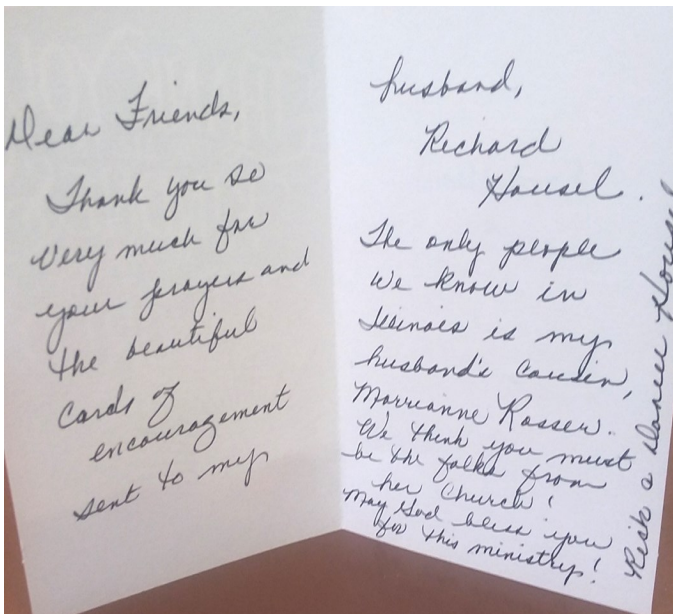 Dear Friends,
Thank you so
very much for
your prayers and
the beautiful
cards of
encouragement
sent to my
husband,
Richard
Housel.
The only people
we know in
Illinois is my
husband's cousin,
Marrianne Rosser.
We think you must
be the folks from
her church!
May God bless you
for this ministry!
Housel